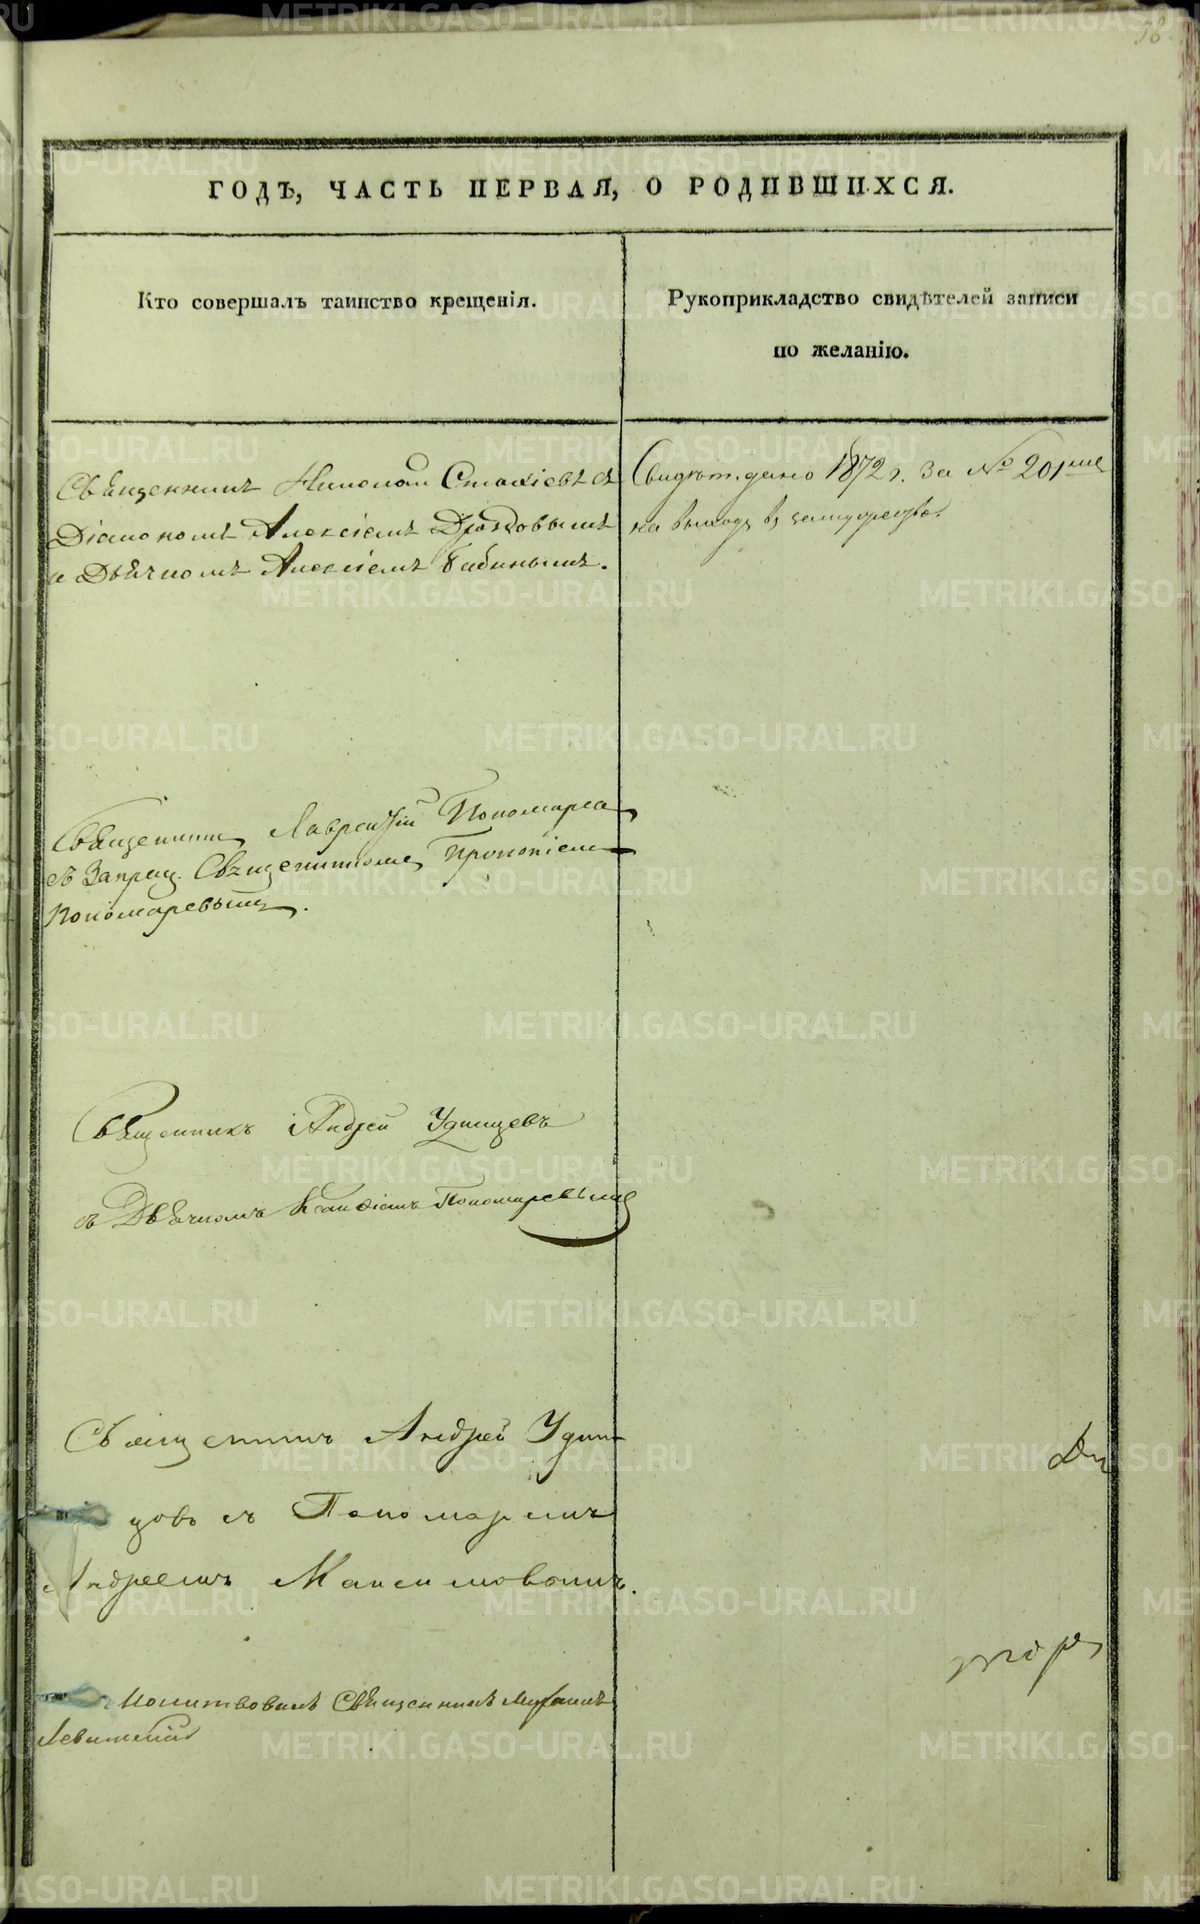 58.
ГОДЪ, ЧАСТЬ ПЕРВАЯ, О РОДИВШИХСЯ.
Кто совершалъ таинство крещенія.
Рукоприкладство свидѣтелей записи
по желанію.
Священникъ Николай Стахіевъ съ
Діакономъ Алексіемъ Дюковымъ
и Дьячкомъ Алексіемъ Бабинымъ.
Свидѣт. дано 1872 г. За № 201
на выходъ въ замужество.
Священникъ Лаврентій Пономарев
съ Запрещ. Священникомъ Прокопіемъ
Пономаревымъ.
Священникъ Андрей Удинцевъ
съ Дьячкомъ Пономаревымъ
Священникъ Андрей Удин-
цовъ съ Пономаремъ
Андреемъ Максимовымъ.
Молитвовалъ Священникъ
Левитскій
METRIKI.GASO-URAL.RU